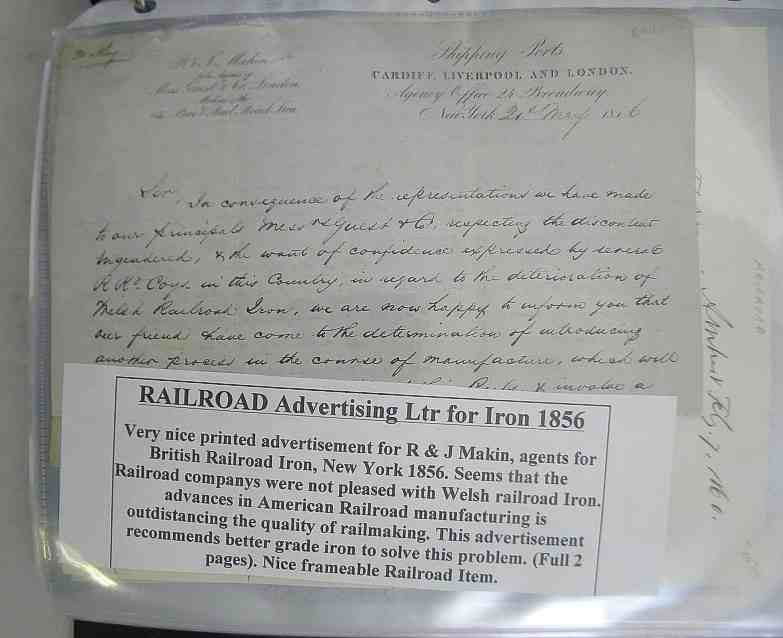 R & J. Makin
Sole Agents of
Mess. Guest & Co. London
Rail Road Iron
Shipping Ports
CARDIFF, LIVERPOOL AND LONDON.
Agency Office 24 Broadway
New York 21st May 1856
Sir,
In consequence of the representations we have made
to our principals Messrs Guest & Co. respecting the discontent
engendered, & the want of confidence expressed by several
R Rd. Coys. in this Country, in regard to the deterioration of
Welsh Railroad Iron, we are now happy to inform you that
our friends have come to the determination of introducing
another process in the course of manufacture, which will
& involve a
RAILROAD Advertising Ltr for Iron 1856
Very nice printed advertisement for R & J Makin, agents for
British Railroad Iron, New York 1856. Seems that the
Railroad companys were not pleased with Welsh railroad Iron.
advances in American Railroad manufacturing is
outdistancing the quality of railmaking. This advertisement
recommends better grade iron to solve this problem. (Full 2
pages). Nice frameable Railroad Item.